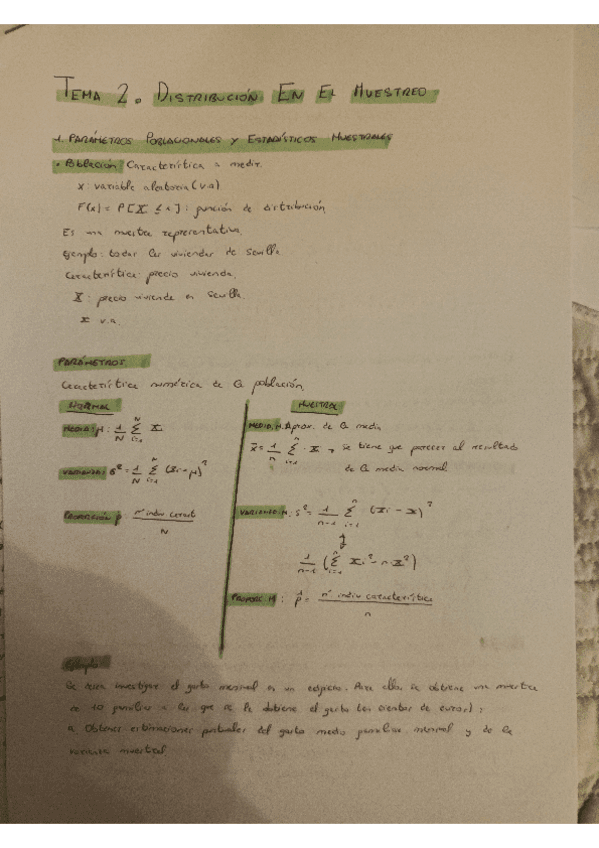 TEMA 2. DISTRIBUCIÓN EN EL MUESTREO
1. PARÁMETROS POBLACIONALES Y ESTADÍSTICOS MUESTRALES
• Población: Característica a medir.
x: variable aleatoria (v.a)
F(x) = P[X ≤ x]: función de distribución
Es una muestra representativa.
Ejemplo: todas las viviendas de Sevilla.
Característica: precio vivienda.
X: precio vivienda en Sevilla.
x v.a.
PARÁMETROS.
Característica numérica de la población.
NORMAL
MEDIA: μ: 1/N Σ(i=1, N) X
VARIANZA: s² = 1/N Σ(i=1, N) (xi - μ)²
PROPORCIÓN p = nº indiv. caract / N
MUESTRAL
MEDIA.M. Aprox. de la media
x̄ = 1/n Σ(i=1, n) · x → se tiene que parecer al resultado
de la media normal
VARIANZA.M: s² = 1/n-1 Σ(i=1, n) (xi - x)²
1/n-1 (Σ(i=1, n) xi² - n · x̄²)
PROPORC. M: p̂ = nº indiv característica / n
Ejemplo
Se desea investigar el gasto mensual en un edificio. Para ello, se obtiene una muestra
de 10 familias a las que se le obtiene el gasto (en cientos de euros):
a. Obtener estimaciones puntuales del gasto medio familiar mensual y de la
varianza muestral